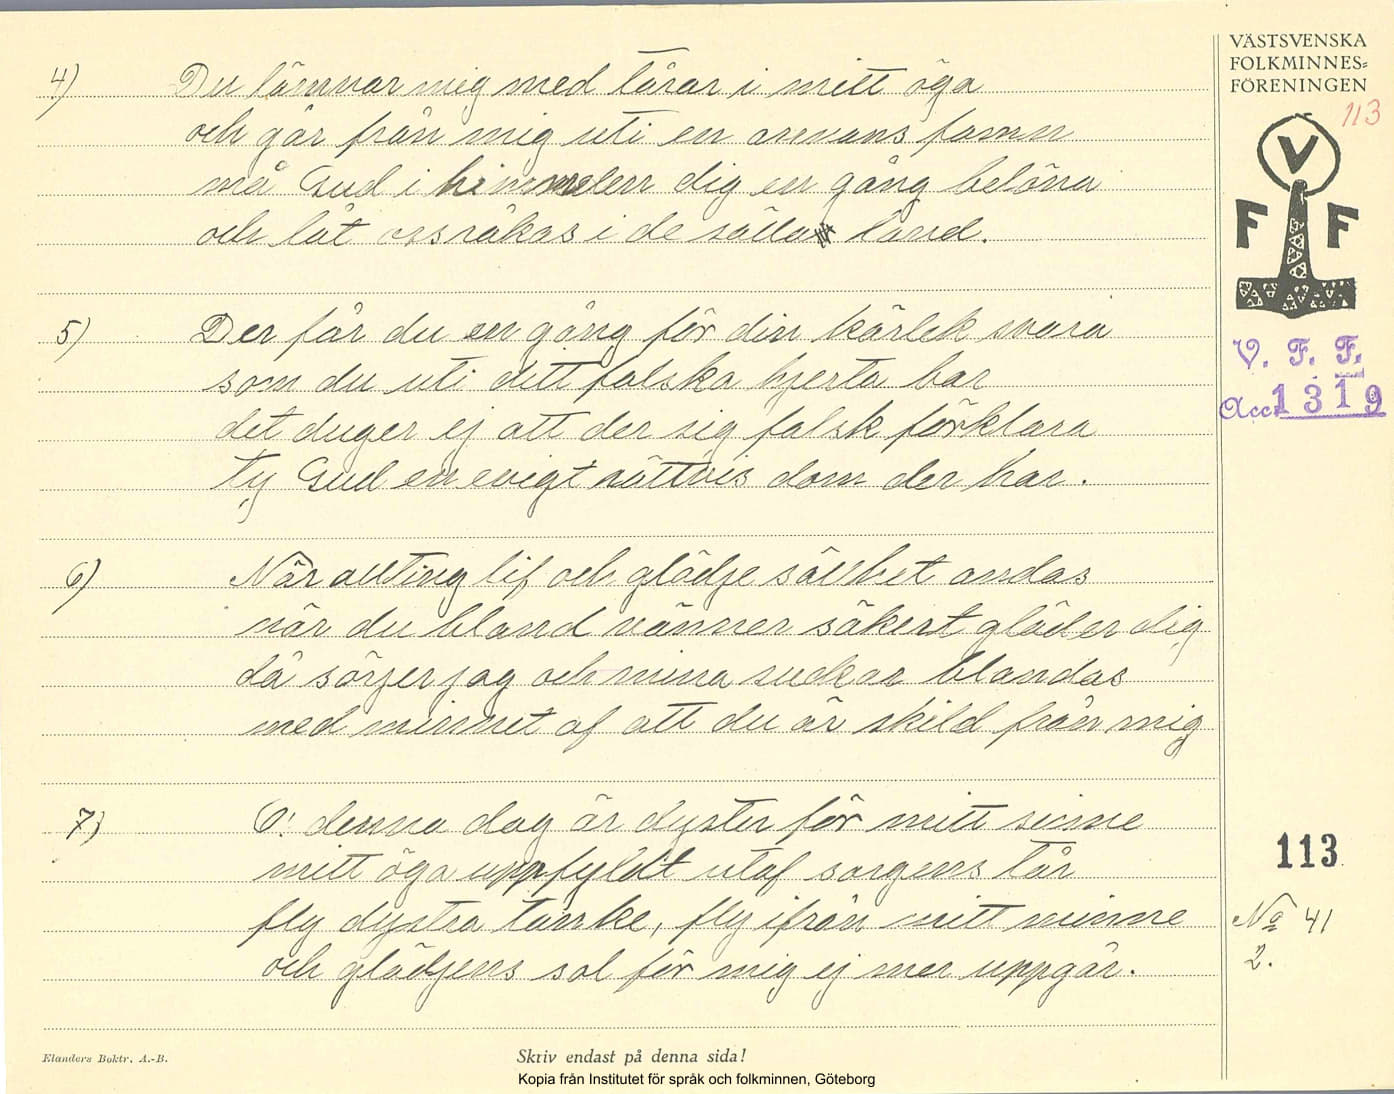 VÄSTSVENSKA
FOLKMINNES=
FÖRENINGEN
113
V
F F
V. F. F.
Acc. 1319
4) Du lämnar mig med tårar i mitt öga
och går från mig uti en annans famn
må Gud i himmelen dig en gång belöna
och låt oss råkas i de sälla land.
5) Der får du en gång för din kärlek svara
som du uti ditt falska hjerta bar
det duger ej att der sig falsk förklara
ty Gud en evigt rättvis dom der har.
6) När allting lif och glädje sällhet andas
när du bland vänner säkert gläder dig
då sörjer jag och mina suckar blandas
med minnet af att du är skild från mig
7) O! denna dag är dyster för mitt sinne
mitt öga uppfyldt utaf sorgens tår
fly dystra tanke, fly ifrån mitt minne
och glädjens sol för mig ej mer uppgår.
113
No 41
2.
Elanders Boktr. A.-B.
Skriv endast på denna sida!
Kopia från Institutet för språk och folkminnen, Göteborg